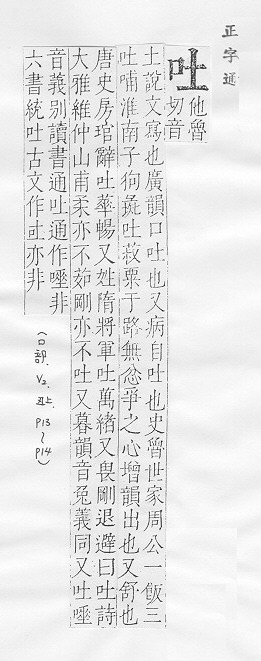 正字通
吐
他魯
切音
土說文寫也廣韻口吐也又病自吐也史魯世家周公一飯三
吐哺淮南子狗彘吐菽粟于路無忿爭之心增韻出也又舒也
唐史房琯辭吐華暢又姓隋將軍吐萬緒又畏剛退避曰吐詩
大雅維仲山甫柔亦不茹剛亦不吐又暮韻音兔義同又吐唾
音義別讀書通吐通作唾非
六書統吐古文作𠮙亦非
(口部, V2, 丑上, P13~P14)